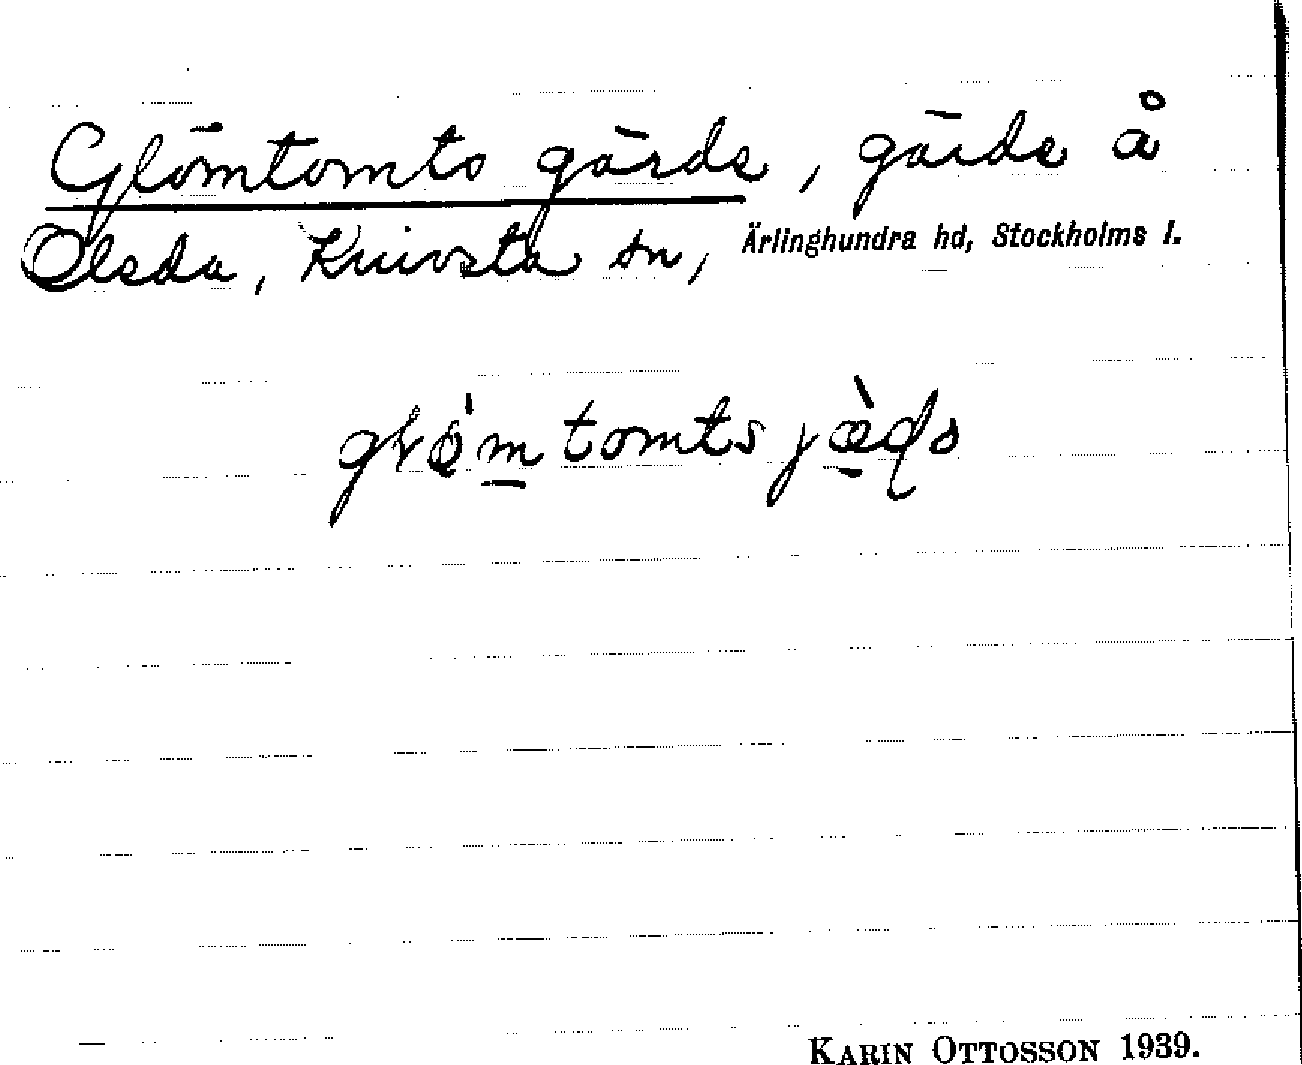 Glömtomts gärde, gärde å
Olsda, Knivsta sn, Ärlinghundra hd, Stockholms l.
tomts
KARIN OTTOSSON 1939.